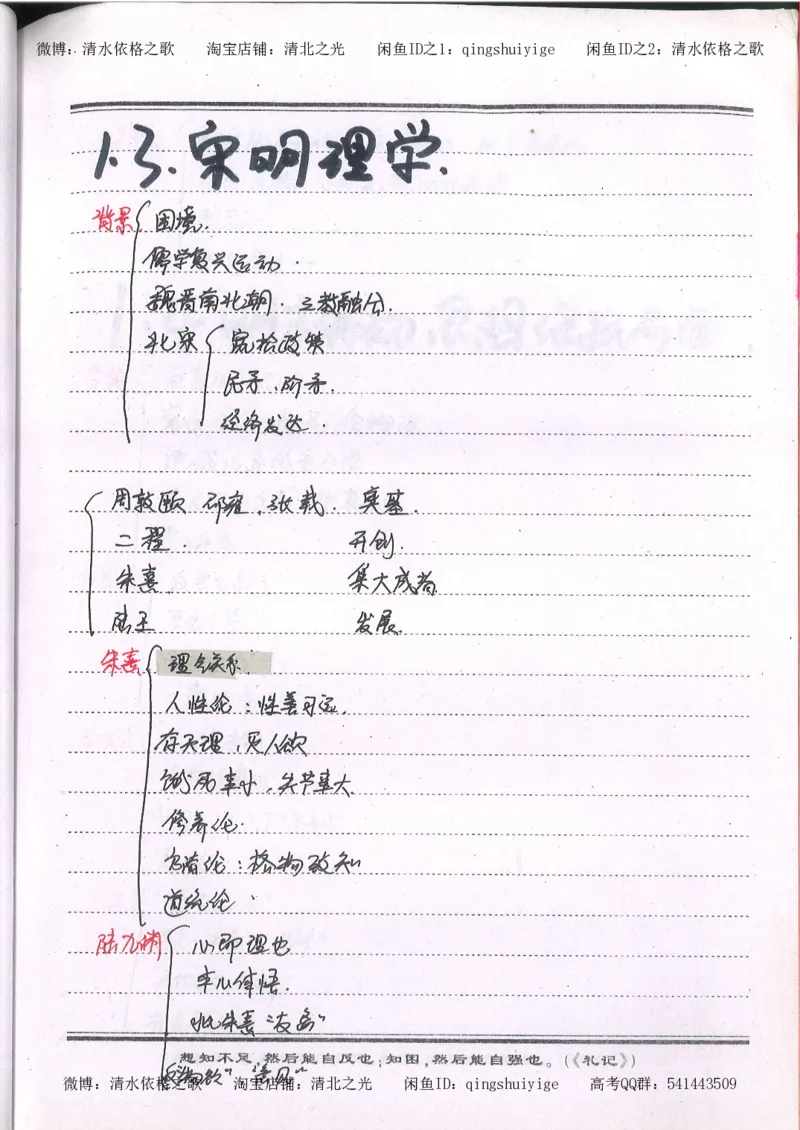 微博：清水依格之歌 淘宝店铺：清北之光 闲鱼ID之1：qingshuiyige 闲鱼ID之2：清水依格之歌
1.3.宋明理学.
背景 困境.
儒学复兴运动.
魏晋南北朝.三教融合.
北宋 宽松政策
民矛.阶矛.
经济发达.
周敦颐 邵雍.张载. 奠基.
二程. 开创.
朱熹 集大成者
陆王 发展.
朱熹 理气关系.
人性论：性善可远.
存天理,灭人欲
饿死事小,失节事大.
修养论.
方法论：格物致知
道统论.
陆九渊 心即理也
本心体悟.
批朱熹"支离"
"物欲" "意见"
趣知不足,然后能自反也;知困,然后能自强也。(《礼记》)
微博：清水依格之歌 淘宝店铺：清北之光 闲鱼ID：qingshuiyige 高考QQ群：541443509